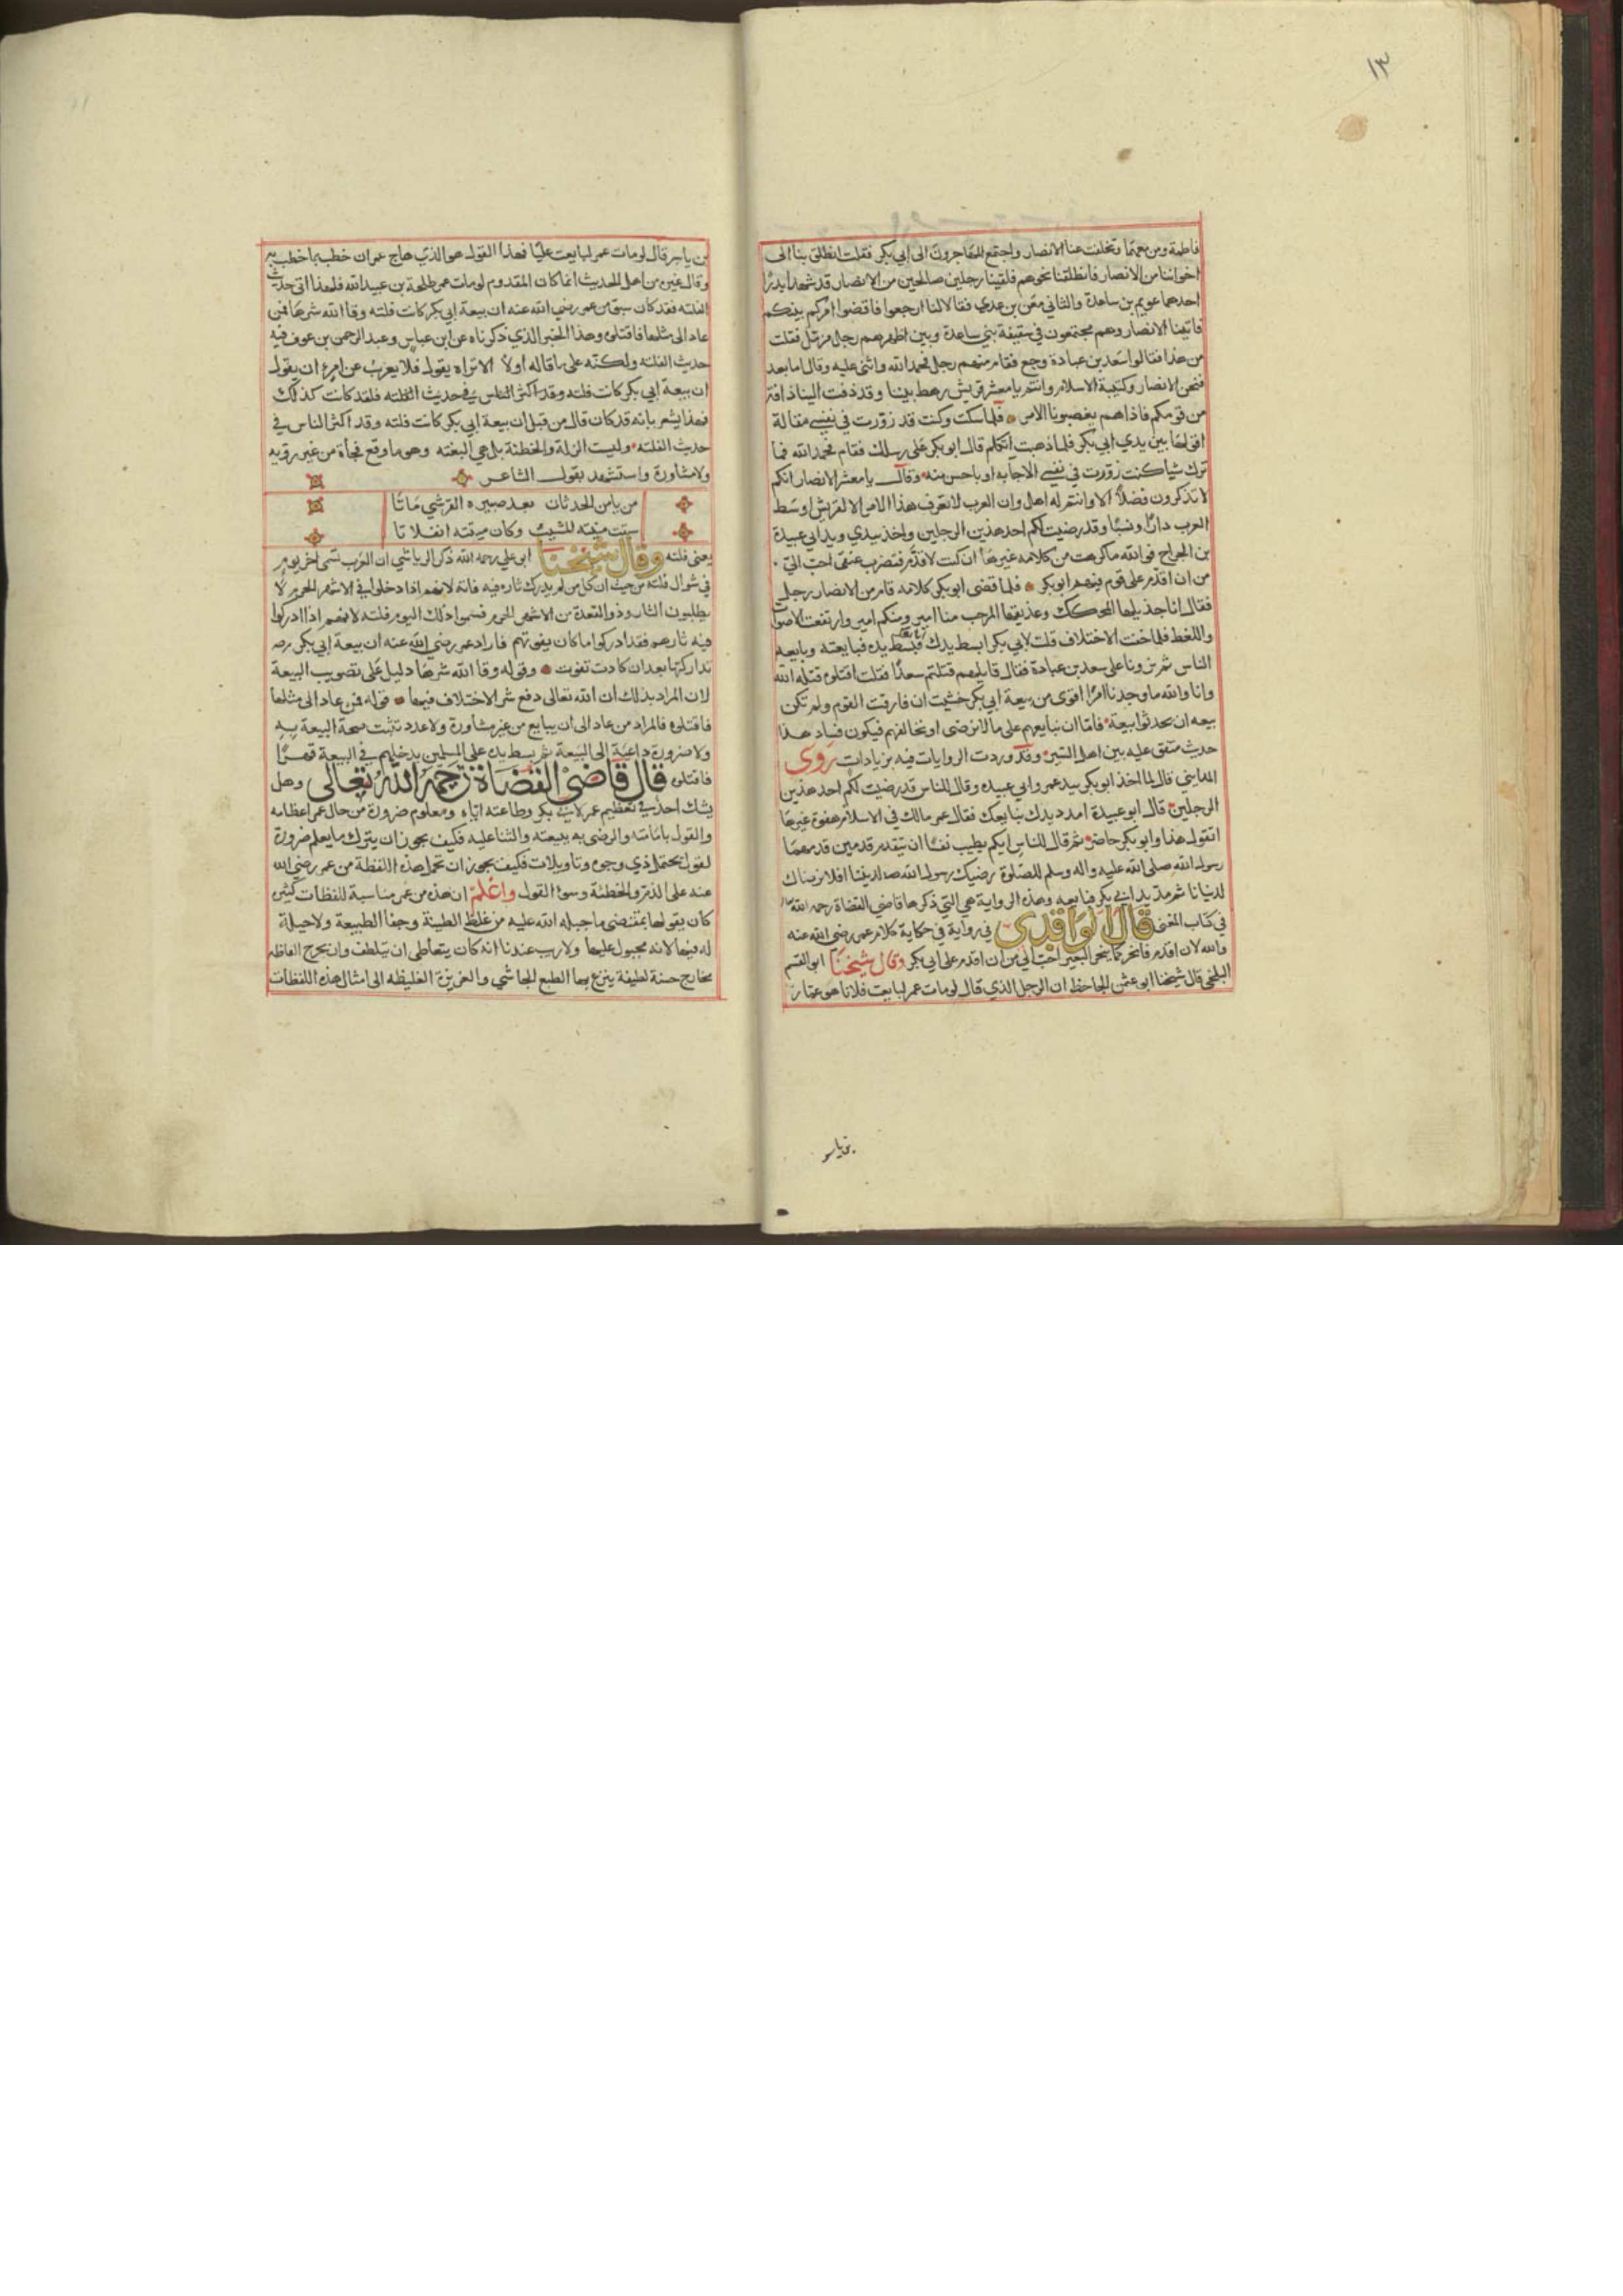 ١٣
فاطمة ومن معهما وتخلفت عنا الانصار واجتمع المهاجرون الى ابي بكر فقلت انطلق بنا الى
اخواننا من الانصار فانطلقنا نحوهم فلقينا رجلين صالحين من الانصار قد شهدا بدرًا
احدهما عويم بن ساعدة والثاني معن بن عدي فقالا لنا ارجعوا فاقضوا امركم بينكم
فاتينا الانصار وهم مجتمعون في سقيفة بني ساعدة وبين اظهرهم رجل مزمل فقلت
من هذا فقالوا سعد بن عبادة وجع فقام منهم رجل فحمد الله واثنى عليه وقال اما بعد
فنحن الانصار وكتيبة الاسلام وانتم يا معشر قريش رهط بينا وقد دفت الينا دافة
من قومكم فاذا هم يغصبونا الامر فلما سكت وكنت قد زورت في نفسي مقالة
اقولها بين يدي ابي بكر فلما ذهبت اتكلم قال ابو بكر على رسلك فقام فحمد الله فما
ترك شيا كنت زورت في نفسي الا جا به او باحسن منه وقال يا معشر الانصار انكم
لا تذكرون فضلًا الا وانتم له اهل وان العرب لا تعرف هذا الامر الا لقريش اوسط
العرب دارًا ونسبًا وقد رضيت لكم احد هذين الرجلين واخذ بيدي ويد ابي عبيدة
بن الجراح فوالله ما كرهت من كلامه غيرها ان كنت لاقدم فتضرب عنقي احب الي
من ان اقدم على قوم فيهم ابو بكر فلما قضى ابو بكر كلامه قام من الانصار رجل
فقال انا جذيلها المحكك وعذيقها المرجب منا امير ومنكم امير وارتفعت الاصوات
واللغط فلما خفت الاختلاف قلت لابي بكر ابسط يدك فبسط يده فبايعته وبايعه
الناس ثم نزونا على سعد بن عبادة فقال قايلهم قتلتم سعدًا فقلت اقتلوه قتله الله
وانا والله ما وجدنا امرًا اقوى من بيعة ابي بكر خشيت ان فارقت القوم ولم تكن
بيعه ان يحدثوا بيعة فاما ان نبايعهم على ما لا نرضى او نخالفهم فيكون فساد هذا
حديث متفق عليه بين اهل السير وقد وردت الروايات فيه بزيادات روى
المدايني قال لما اخذ ابو بكر بيد عمر وابي عبيده وقال للناس قد رضيت لكم احد هذين
الرجلين قال ابو عبيدة امدد يدك نبايعك فقال عمر مالك في الاسلام هفوة غيرها
اتقول هذا وابو بكر حاضر ثم قال للناس ايكم يطيب نفسًا ان يتقدم قدمين قدمهما
رسول الله صلى الله عليه واله وسلم للصلوة رضيك رسول الله لديننا افلا نرضاك
لدنيانا ثم مد يد ابي بكر فبايعه وهذه الرواية هي التي ذكرها قاضي القضاة رحمه الله
في كتاب المغني قال الواقدي في رواية في حكاية كلام عمر رضي الله عنه
والله لان اقدم فانحر كما ينحر البعير احب الي من ان اقدم على ابي بكر وقال شيخنا ابو القسم
البلخي قال شيخنا ابو عثمن الجاحظ ان الرجل الذي قال لو مات عمر لبايعت فلانا هو عمار
بن ياسر
بن ياسر قال لو مات عمر لبايعت عليًا فهذا القول هو الذي هاج عمر ان خطب بما خطب به
وقال غيره من اهل الحديث انما كان المقدوم لو مات عمر طلحة بن عبيد الله فلهذا اتى حديث
الفلته فقد كان سبق من عمر رضي الله عنه ان بيعة ابي بكر كانت فلته وقا الله شرها فمن
عاد الى مثلها فاقتلوه وهذا الخبر الذي ذكرناه عن ابن عباس وعبد الرحمن بن عوف فيه
حديث الفلته ولكنه على ما قاله اولًا الا تراه يقول فلا يغرن عن امرء ان يقول
ان بيعة ابي بكر كانت فلته وقد اكثر الناس في حديث الفلته فلقد كانت كذلك
فهذا يشعر بانه قد كان قال من قبل ان بيعة ابي بكر كانت فلته وقد اكثر الناس في
حديث الفلته وليست الزلة والخطئة بل هي البغته وهو ما وقع فجأة من غير روية
ولا مشاورة واستشهد بقول الشاعر
من يامن الحدثان بعد صبيره القرشي ماتا
سبقت منيته المشيب وكان ميتته افتلاتا
يعني فلته وقال شيخنا ابو علي رحمه الله ذكر الرياشي ان العرب تسمي اخر يوم
في شوال فلته من حيث ان كل من لم يدرك ثاره فيه فاته لانهم اذا دخلوا في الاشهر الحرم لا
يطلبون الثار وذو القعدة من الاشهر الحرم فسموا ذلك اليوم فلته لانهم اذا ادركوا
فيه ثارهم فقد ادركوا ما كان يفوتهم فاراد عمر رضي الله عنه ان بيعة ابي بكر
تداركها بعد ان كادت تفوت وقوله وقا الله شرها دليل على تصويب البيعة
لان المراد بذلك ان الله تعالى دفع شر الاختلاف فيها قوله فمن عاد الى مثلها
فاقتلوه فالمراد من عاد الى ان يبايع من غير مشاورة ولا عدد تثبت صحة البيعة به
ولا ضرورة داعية الى البيعة ثم يبسط يده على المسلمين يدخلهم في البيعة قهرًا
فاقتلوه قال قاضي القضاة رحمه الله تعالى وهل
يشك احد في تعظيم عمر لابي بكر وطاعته اياه ومعلوم ضرورة من حال عمر اعظامه
والقول بامامته والرضى به ببيعته والثنا عليه فكيف يجوز ان يترك ما يعلم ضرورة
لقول محتمل ذي وجوه وتاويلات فكيف يجوز ان تحمل هذه اللفظة من عمر رضي الله
عنه على الذم والخطئة وسوء القول واعلم ان هذه من عمر مناسبة للفظات كثيره
كان يقولها بمقتضى ما جبله الله عليه من غلظ الطينة وجفا الطبيعة ولا حيلة
له فيها لانه مجبول عليها ولا ريب عندنا انه كان يتعاطى ان يتلطف وان يخرج الفاظه
مخارج حسنة لطيفة ينزع بها الطبع الجاسي والغريزة الغليظه الى امثال هذه اللفظات